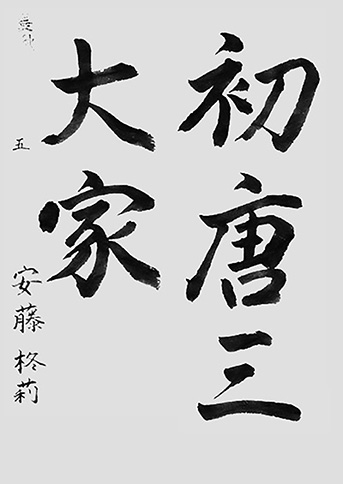 初唐三
大家
五
安藤柊莉